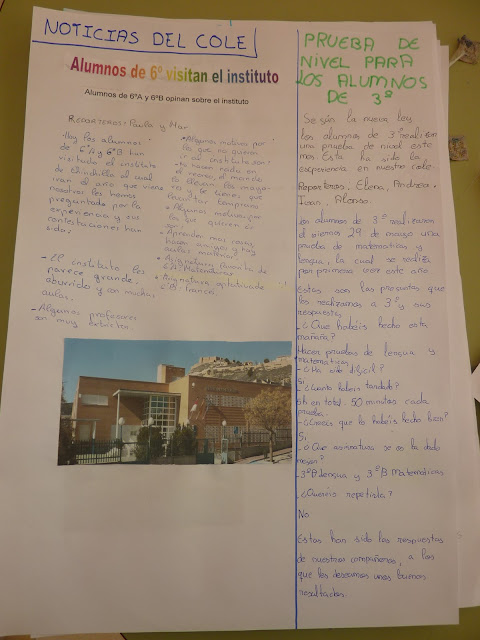 NOTICIAS DEL COLE
Alumnos de 6º visitan el instituto
Alumnos de 6ºA y 6ºB opinan sobre el instituto
REPORTEROS: Paula y Mar
-Hoy los alumnos
de 6ºA y 6ºB han
visitado el instituto
de Chinchilla al cual
iran el año que viene
nosotros les hemos
preguntado por la
experiencia y sus
contestaciones han
sido:
- El instituto les
parece grande,
aburrido y con muchas
aulas.
- Algunos profesores
son muy estrictos.
- Algunos motivos por
los que no quieren
ir al instituto son:
el recreo,
- Algunos motivos por
los que quieren ir
son:
- Aprender mas cosas,
hacer amigos y hay
aulas
- Asignatura favorita de
6ºA: Matemáticas
- Asignatura optativa de
6ºB: francés.
PRUEBA DE
NIVEL PARA
LOS ALUMNOS
DE 3º
Según la nueva ley
los alumnos de 3º realizan
una prueba de nivel este
mes. Esta ha sido la
experiencia en nuestro cole.
Reporteros: Elena, Andrea,
Ivan, Alonso.
Los alumnos de 3º realizaron
el viernes 29 de mayo una
prueba de matematicas y
lengua, la cual se realiza
por primera vez este año.
Estas son las preguntas que
les realizamos a 3º y sus
respuestas
- ¿Que habéis hecho esta
mañana?
Hacer pruebas de lengua y
matematicas
- ¿Ha sido dificil?
Si
- ¿Cuanto habeis tardado?
5h en total. 50 minutos cada
prueba.
- ¿Creeis que lo habéis hecho bien?
Si
- ¿Que asignatura se os ha dado
mejor?
- 3ºA lengua y 3ºB Matematicas
- ¿Quereis repetirla?
No
Estas han sido las respuestas
de nuestros compañeros, a los
que les deseamos unos buenos
resultados.